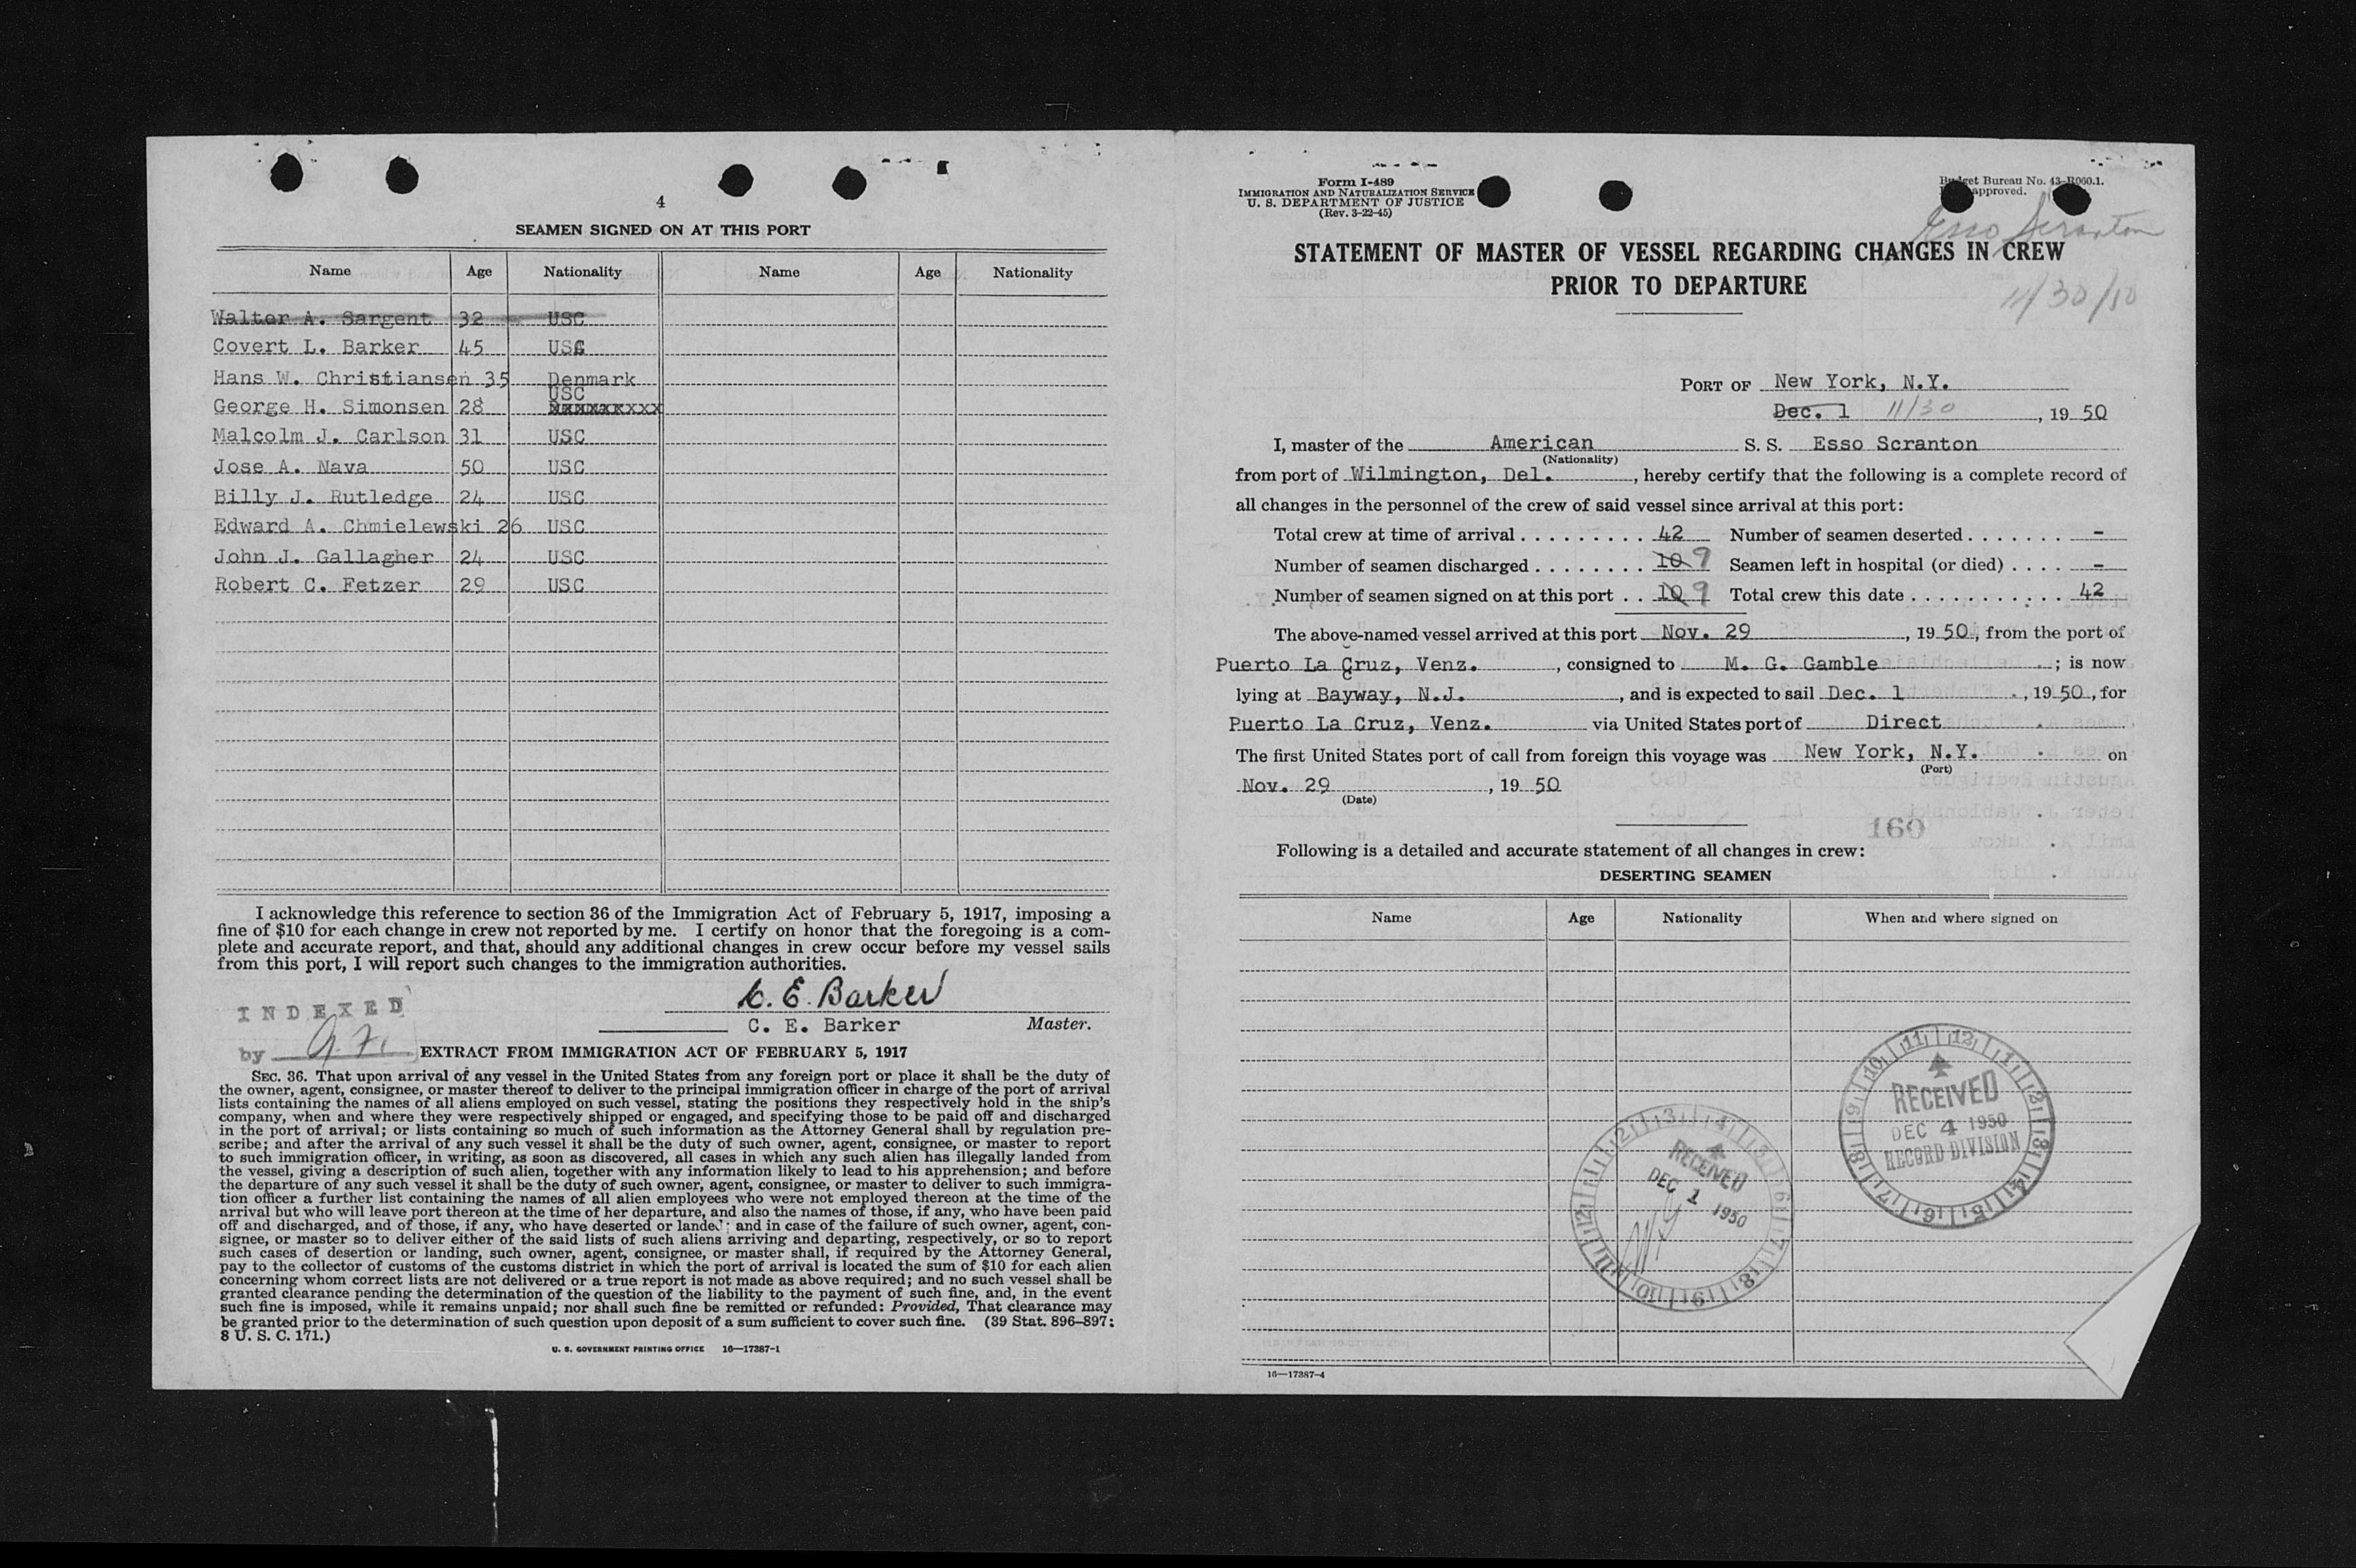 4
SEAMEN SIGNED ON AT THIS PORT
Name Age Nationality Name Age Nationality
Walter A. Sargent 32 USC
Covert L. Barker 45 USC
Hans W. Christiansen 35 Denmark
USC
George H. Simonsen 28
Malcolm J. Carlson 31 USC
Jose A. Nava 50 USC
Billy J. Rutledge 24 USC
Edward A. Chmielewski 26 USC
John J. Gallagher 24 USC
Robert C. Fetzer 29 USC
I acknowledge this reference to section 36 of the Immigration Act of February 5, 1917, imposing a
fine of $10 for each change in crew not reported by me. I certify on honor that the foregoing is a com-
plete and accurate report, and that, should any additional changes in crew occur before my vessel sails
from this port, I will report such changes to the immigration authorities.
C. E. Barker
INDEXED
C. E. Barker Master.
by
EXTRACT FROM IMMIGRATION ACT OF FEBRUARY 5, 1917
SEC. 36. That upon arrival of any vessel in the United States from any foreign port or place it shall be the duty of
the owner, agent, consignee, or master thereof to deliver to the principal immigration officer in charge of the port of arrival
lists containing the names of all aliens employed on such vessel, stating the positions they respectively hold in the ship's
company, when and where they were respectively shipped or engaged, and specifying those to be paid off and discharged
in the port of arrival; or lists containing so much of such information as the Attorney General shall by regulation pre-
scribe; and after the arrival of any such vessel it shall be the duty of such owner, agent, consignee, or master to report
to such immigration officer, in writing, as soon as discovered, all cases in which any such alien has illegally landed from
the vessel, giving a description of such alien, together with any information likely to lead to his apprehension; and before
the departure of any such vessel it shall be the duty of such owner, agent, consignee, or master to deliver to such immigra-
tion officer a further list containing the names of all alien employees who were not employed thereon at the time of the
arrival but who will leave port thereon at the time of her departure, and also the names of those, if any, who have been paid
off and discharged, and of those, if any, who have deserted or landed; and in case of the failure of such owner, agent, con-
signee, or master so to deliver either of the said lists of such aliens arriving and departing, respectively, or so to report
such cases of desertion or landing, such owner, agent, consignee, or master shall, if required by the Attorney General,
pay to the collector of customs of the customs district in which the port of arrival is located the sum of $10 for each alien
concerning whom correct lists are not delivered or a true report is not made as above required; and no such vessel shall be
granted clearance pending the determination of the question of the liability to the payment of such fine, and, in the event
such fine is imposed, while it remains unpaid; nor shall such fine be remitted or refunded: Provided, That clearance may
be granted prior to the determination of such question upon deposit of a sum sufficient to cover such fine. (39 Stat. 896–897;
8 U. S. C. 171.)
U. S. GOVERNMENT PRINTING OFFICE 16—17387-1
Form I-489
IMMIGRATION AND NATURALIZATION SERVICE
U. S. DEPARTMENT OF JUSTICE
(Rev. 3-22-45)
Budget Bureau No. 43-R060.1.
approved.
Esso Scranton
STATEMENT OF MASTER OF VESSEL REGARDING CHANGES IN CREW
PRIOR TO DEPARTURE
11/30/50
PORT OF New York, N.Y.
Dec. 1 11/30, 19 50
I, master of the American S. S. Esso Scranton
(Nationality)
from port of Wilmington, Del., hereby certify that the following is a complete record of
all changes in the personnel of the crew of said vessel since arrival at this port:
Total crew at time of arrival . . . . . . . . . 42 Number of seamen deserted . . . . . . . -
Number of seamen discharged . . . . . . . . 10 9 Seamen left in hospital (or died) . . . . -
Number of seamen signed on at this port . . 10 9 Total crew this date . . . . . . . . . . . 42
The above-named vessel arrived at this port Nov. 29, 19 50, from the port of
Puerto La Cruz, Venz., consigned to M. G. Gamble; is now
lying at Bayway, N.J., and is expected to sail Dec. 1, 19 50, for
Puerto La Cruz, Venz. via United States port of Direct
The first United States port of call from foreign this voyage was New York, N.Y. on
(Port)
Nov. 29, 19 50
(Date)
160
Following is a detailed and accurate statement of all changes in crew:
DESERTING SEAMEN
Name Age Nationality When and where signed on
RECEIVED
DEC 4 1950
RECORD DIVISION
RECEIVED
DEC 1 1950
16—17387-4